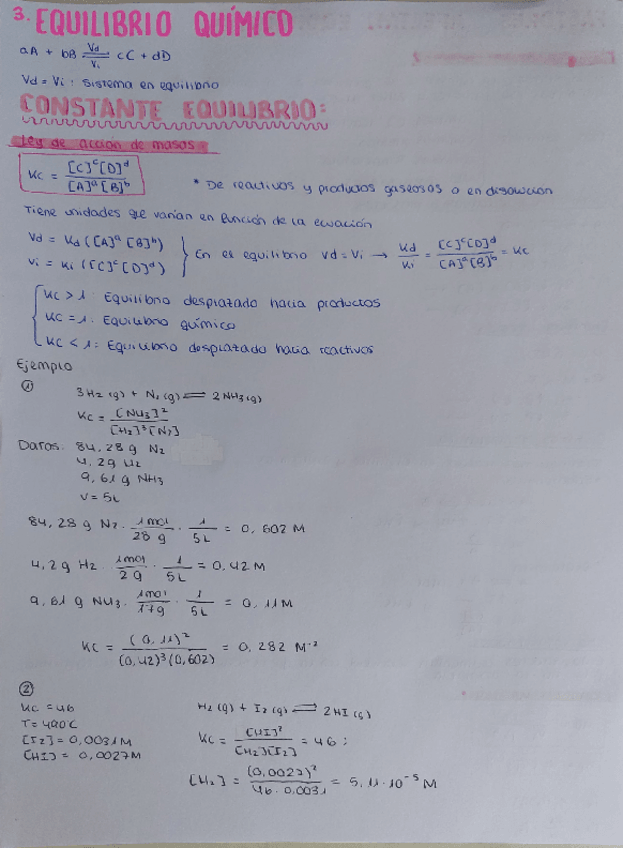 3. EQUILIBRIO QUÍMICO
aA + bB ⇌ (Vd / Vi) cC + dD
Vd = Vi : Sistema en equilibrio
CONSTANTE EQUILIBRIO:
Ley de acción de masas
Kc = [C]^c [D]^d / [A]^a [B]^b * De reactivos y productos gaseosos o en disolución
Tiene unidades que varían en función de la ecuación
Vd = Kd ([A]^a [B]^b)
Vi = Ki ([C]^c [D]^d) } En el equilibrio Vd = Vi → Kd / Ki = [C]^c [D]^d / [A]^a [B]^b = Kc
Kc > 1 : Equilibrio desplazado hacia productos
Kc = 1 : Equilibrio químico
Kc < 1 : Equilibrio desplazado hacia reactivos
Ejemplo
①
3 H2 (g) + N2 (g) ⇌ 2 NH3 (g)
Kc = [NH3]^2 / [H2]^3 [N2]
Datos: 84,28 g N2
4,2 g H2
9,61 g NH3
V = 5L
84,28 g N2 · 1 mol / 28 g · 1 / 5L = 0,602 M
4,2 g H2 · 1 mol / 2 g · 1 / 5L = 0,42 M
9,61 g NH3 · 1 mol / 17 g · 1 / 5L = 0,11 M
Kc = (0,11)^2 / (0,42)^3 (0,602) = 0,282 M^-2
②
Kc = 46 H2 (g) + I2 (g) ⇌ 2HI (g)
T = 490°C
[I2] = 0,0031 M Kc = [HI]^2 / [H2][I2] = 46 ;
[HI] = 0,0027 M
[H2] = (0,0027)^2 / 46 · 0,0031 = 5,11 · 10^-5 M